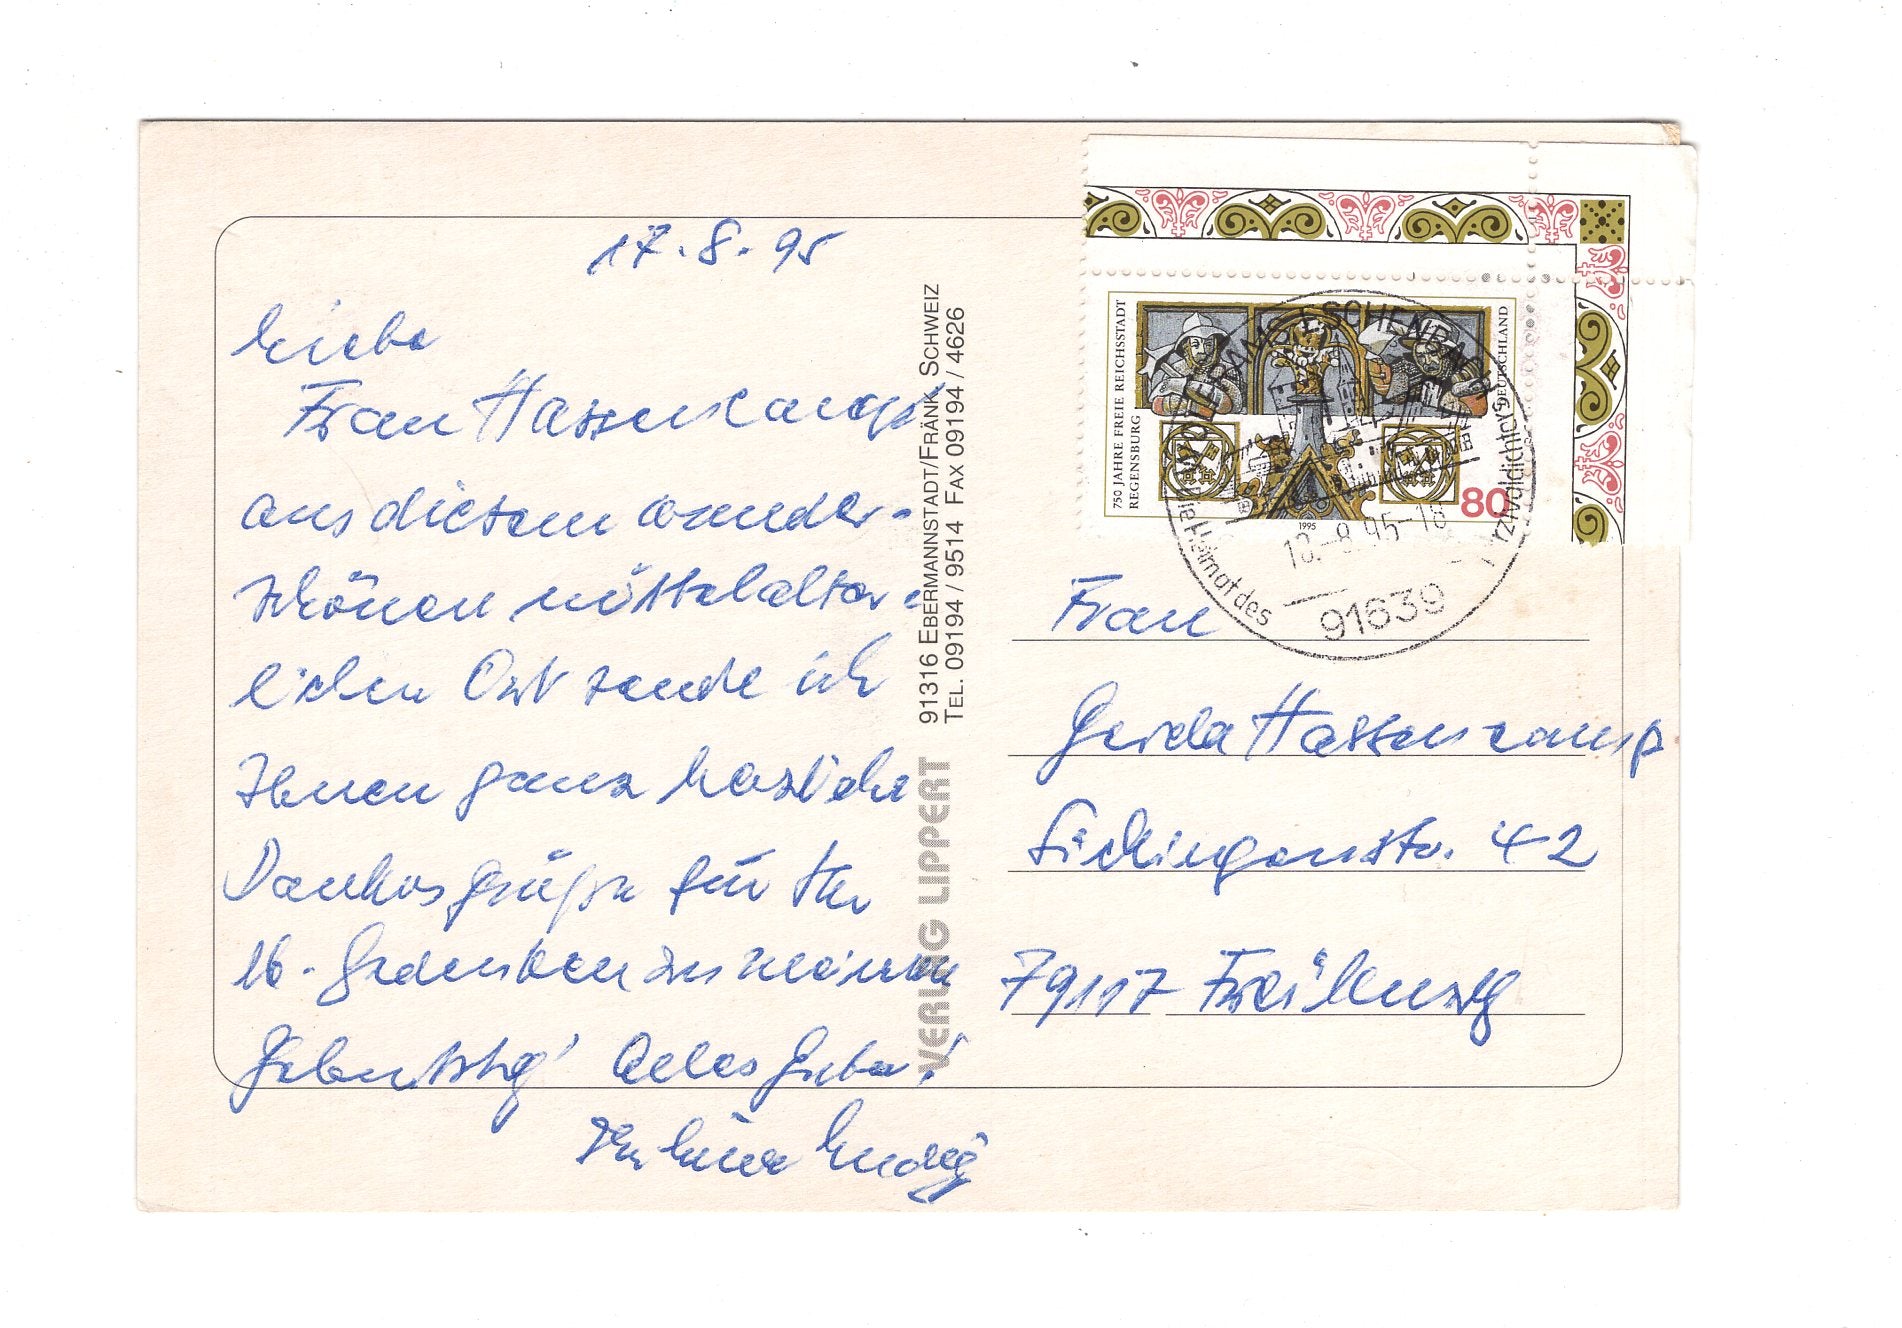 17.8.95
Liebe
Frau Hassencamp
aus diesem wunder-
schönen mittelalter-
lichen Ort sende ich
Ihnen ganz herzliche
Dankesgrüße für Ihr
lb. Gedenken zu meinem
Geburtstg! Alles Liebe!
Ihre
VERLAG LIPPERT
91316 EBERMANNSTADT/FRÄNK. SCHWEIZ
TEL. 09194 / 9514 FAX 09194 / 4626
750 JAHRE FREIE REICHSSTADT
REGENSBURG
DEUTSCHLAND
80
1995
WOLFRAMS-ESCHENBACH
18.-8.95-18
91639
die Heimat des
Parzivaldichters
Frau
Gerda Hassencamp
Sickingenstr. 42
79117 Freiburg